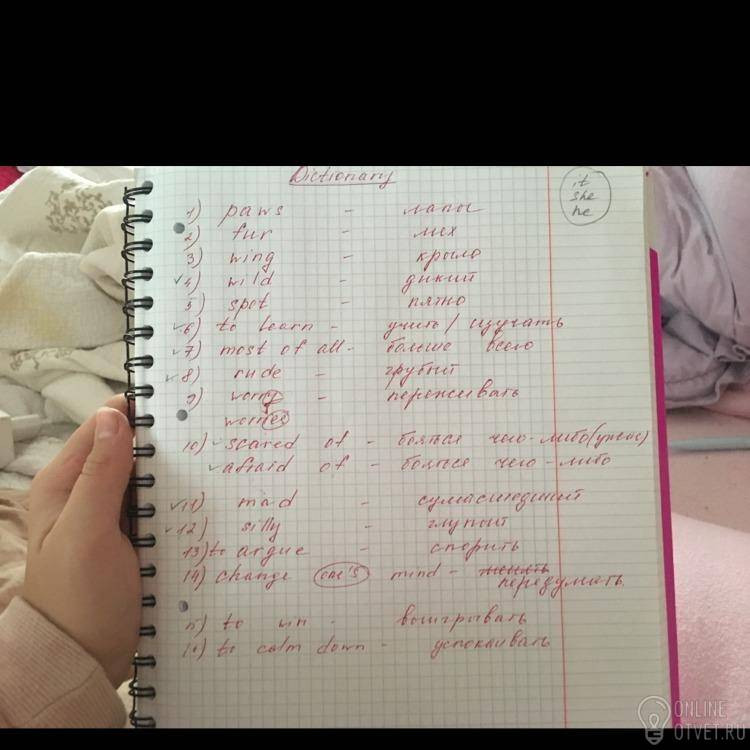 Dictionary
it
she
he
1) paws - лапы
2) fur - мех
3) wing - крыло
✓4) wild - дикий
5) spot - пятно
✓6) to learn - учить / изучать
✓7) most of all - больше всего
✓8) rude - грубый
9) worry - переживать
worries
10) ✓scared of - бояться чего-либо (ужас)
✓afraid of - бояться чего-либо
✓11) mad - сумасшедший
✓12) silly - глупый
13) to argue - спорить
14) change one's mind - передумать
15) to win - выигрывать
16) to calm down - успокаивать
ONLINE
OTVET.RU